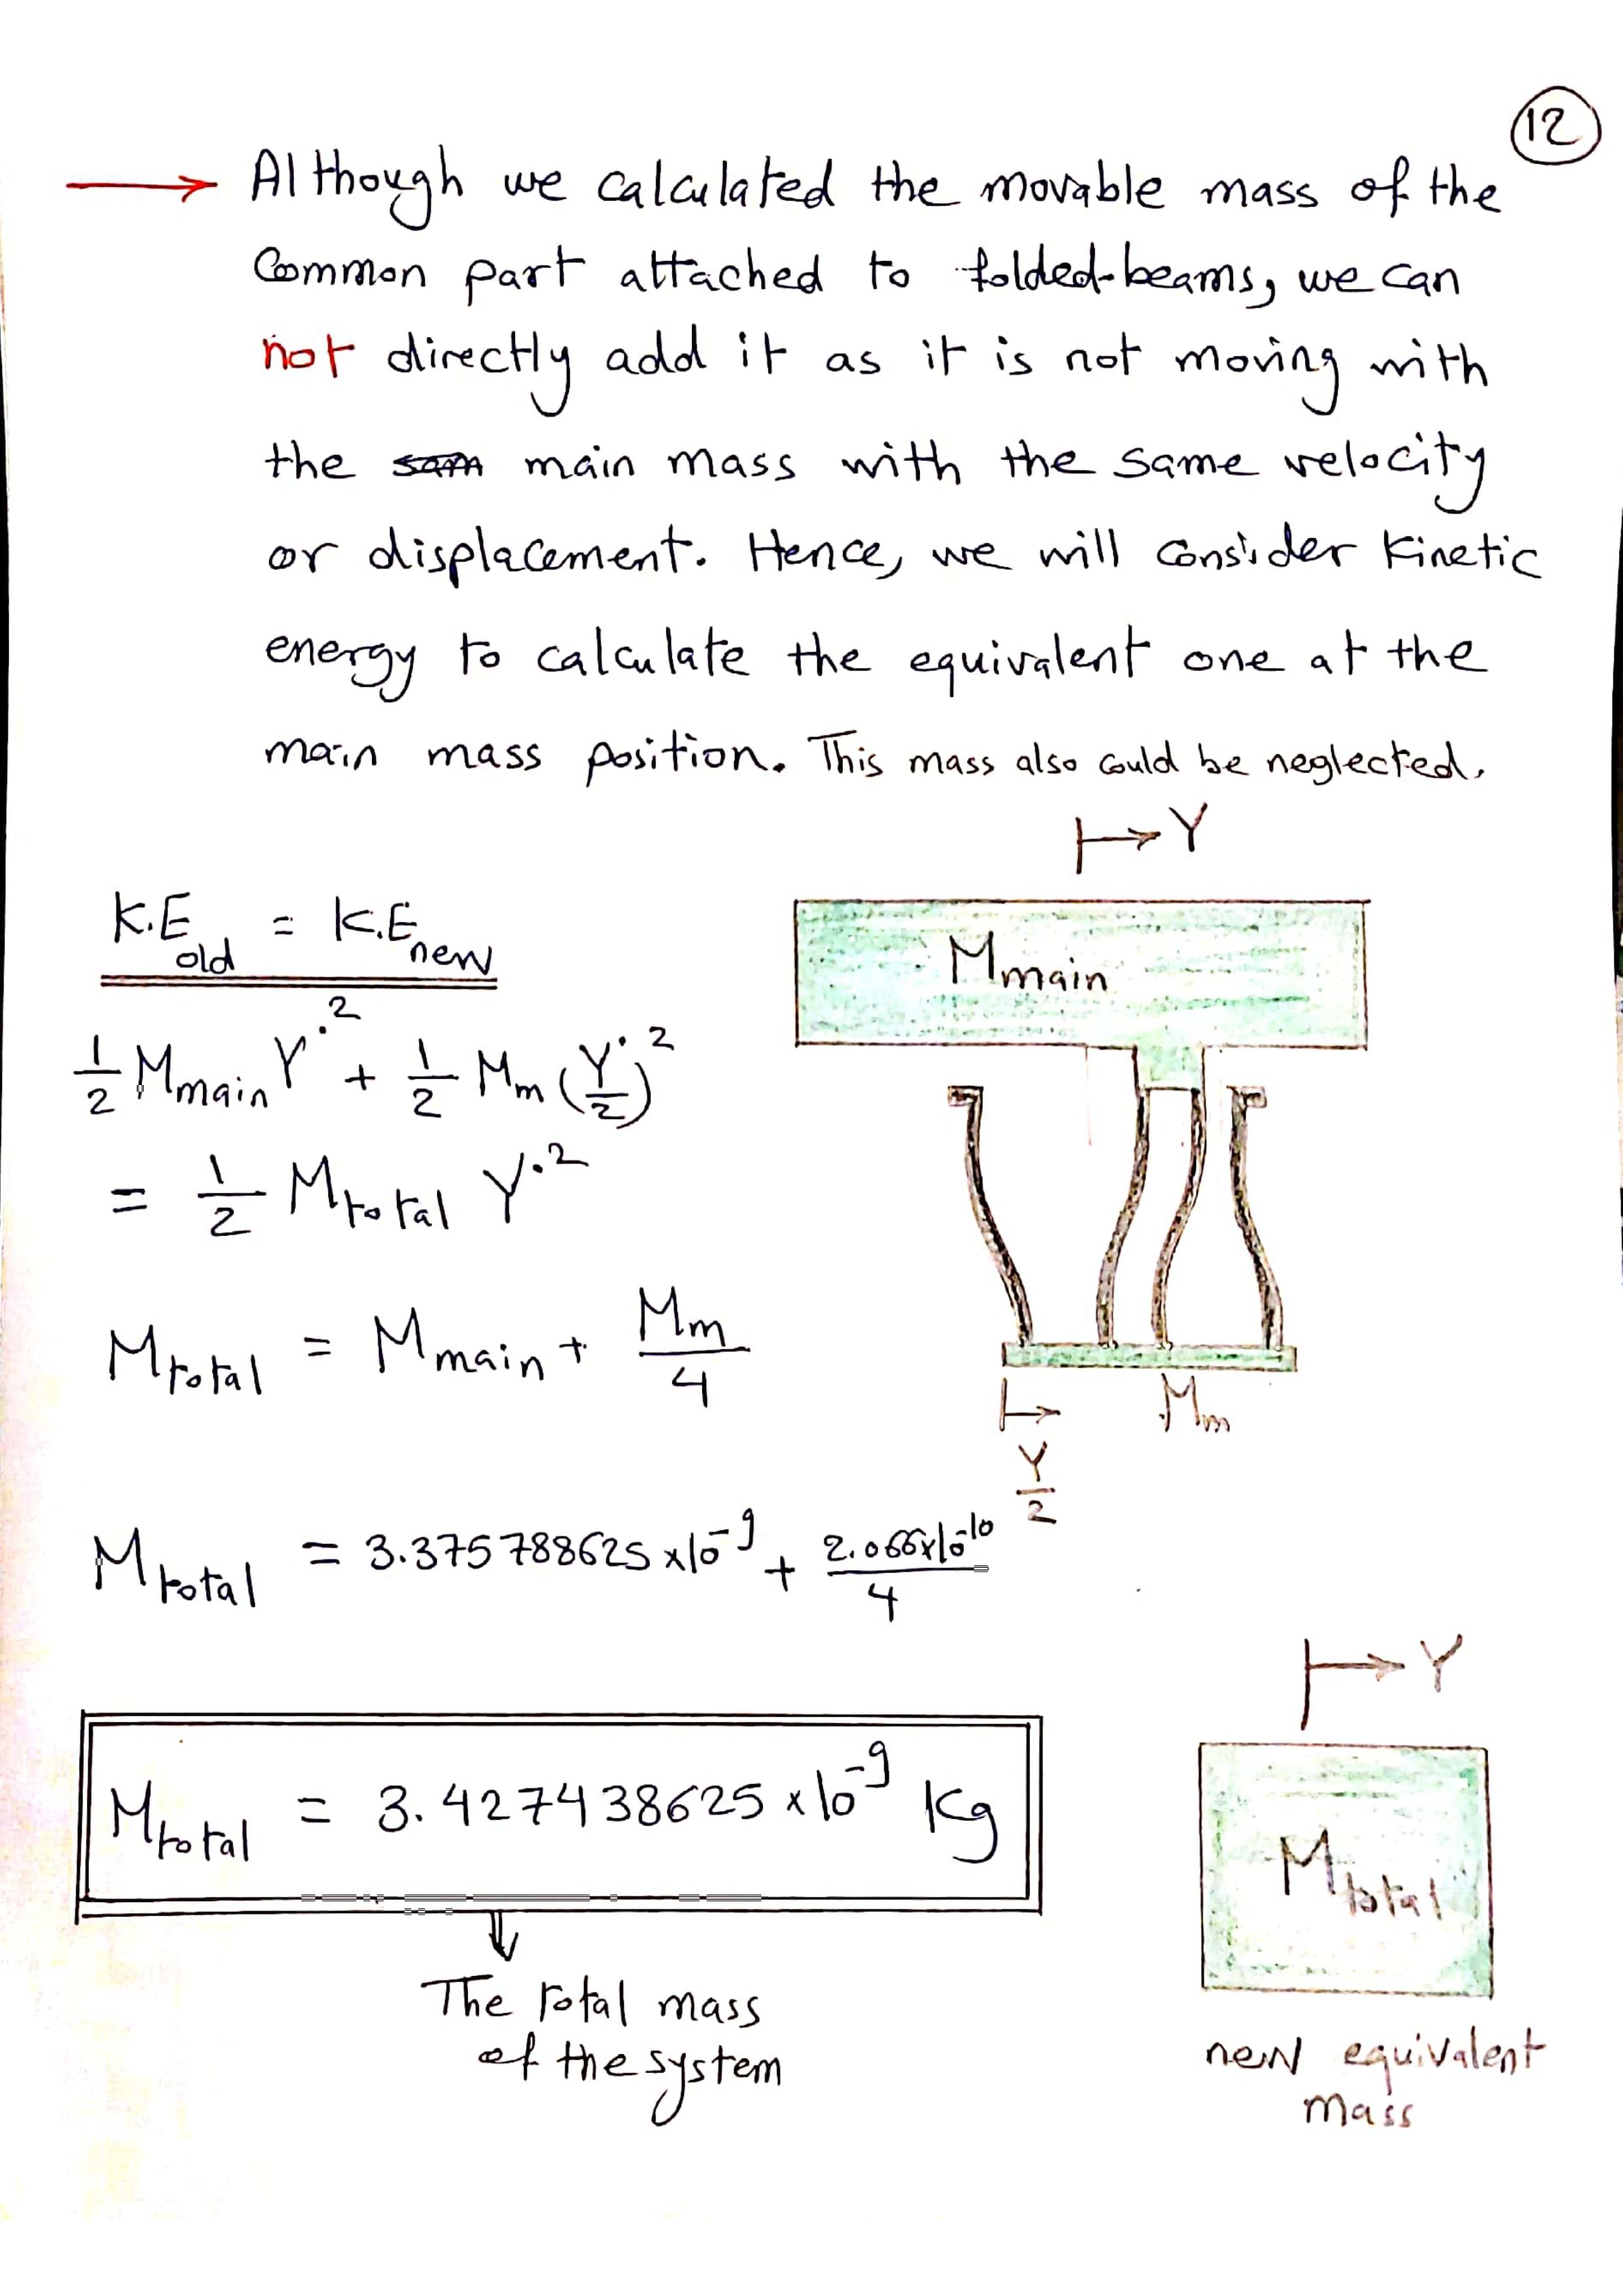 12
Although we calculated the movable mass of the
Common part attached to folded-beams, we can
not directly add it as it is not moving with
the main mass with the same velocity
or displacement. Hence, we will consider Kinetic
energy to calculate the equivalent one at the
main mass position. This mass also could be neglected.
Y
K.E old = K.E new
Mmain
1/2 Mmain Ẏ² + 1/2 Mm (Ẏ/2)²
= 1/2 Mtotal Ẏ²
Mtotal = Mmain + Mm/4
Mm
Y/2
Mtotal = 3.375788625 x10⁻⁹ + 2.066x10⁻¹⁰/4
Y
Mtotal = 3.427438625 x10⁻⁹ Kg
Mtotal
The total mass
of the system
new equivalent
mass